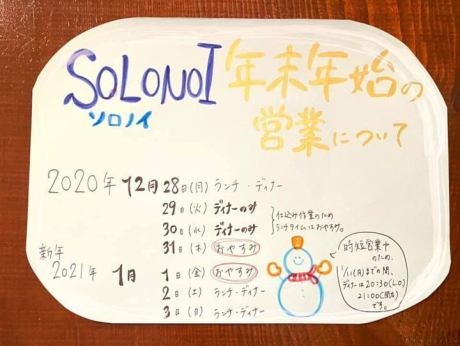 SOLONOI 年末年始の
ソロノイ 営業について
2020年 12月 28日(月) ランチ・ディナー
29日(火) ディナーのみ
30日(水) ディナーのみ
仕込み作業のため
ランチタイムはおやすみ。
31日(木) おやすみ
新年
2021年 1月 1日(金) おやすみ
2日(土) ランチ・ディナー
3日(日) ランチ・ディナー
時短営業中
のため、
1/11(月)までの間、
ディナーは20:30(L.O)
21:00(閉店)
です。